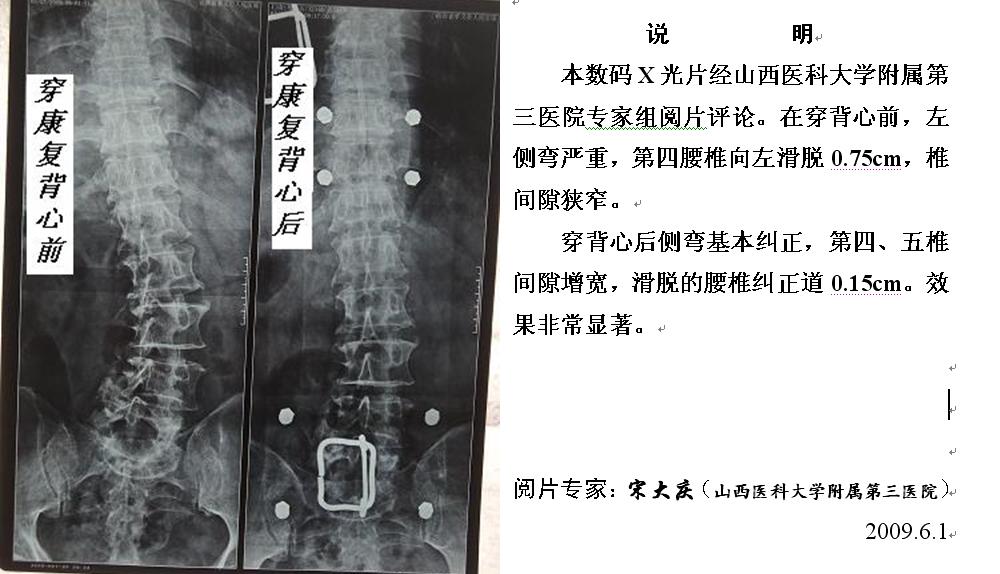 穿康复背心前
穿康复背心后
说 明
本数码 X 光片经山西医科大学附属第
三医院专家组阅片评论。在穿背心前，左
侧弯严重，第四腰椎向左滑脱 0.75cm，椎
间隙狭窄。
穿背心后侧弯基本纠正，第四、五椎
间隙增宽，滑脱的腰椎纠正道 0.15cm。效
果非常显著。
阅片专家：宋大庆（山西医科大学附属第三医院）
2009.6.1